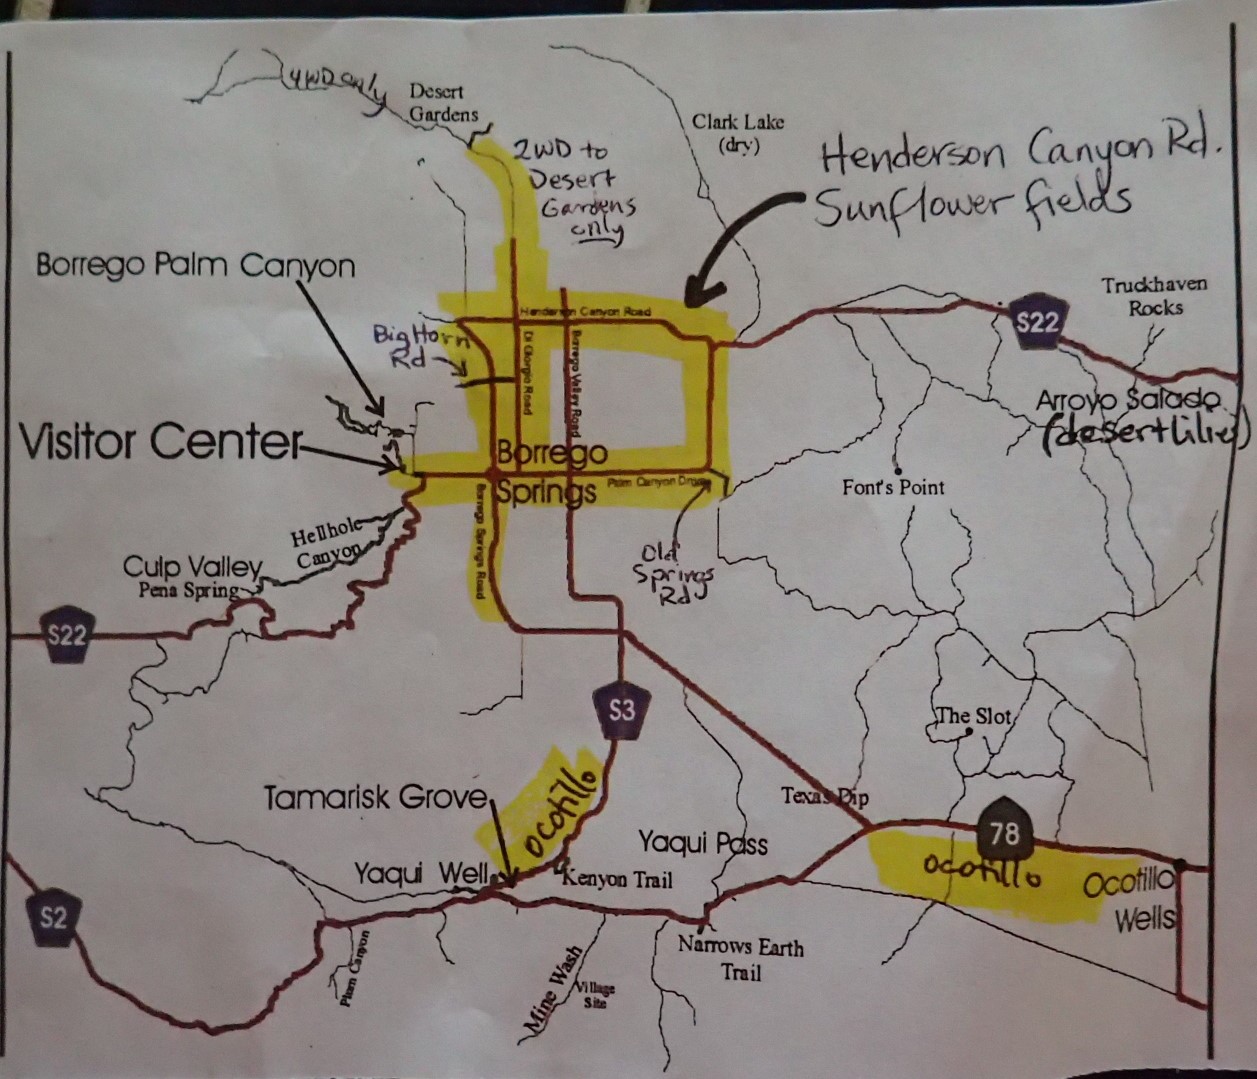 4WD only
Desert
Gardens
2WD to
Desert
Gardens
only
Clark Lake
(dry)
Henderson Canyon Rd.
Sunflower fields
Borrego Palm Canyon
Truckhaven
Rocks
S22
Henderson Canyon Road
Big Horn
Rd
Di Giorgio Road
Borrego Valley Road
Arroyo Salado
(desert lilies)
Visitor Center
Borrego
Springs
Palm Canyon Drive
Font's Point
Borrego Springs Road
Hellhole
Canyon
Old
Springs
Rd
Culp Valley
Pena Spring
S22
S3
The Slot
Tamarisk Grove
Ocotillo
Texas Dip
78
Yaqui Pass
Yaqui Well
Kenyon Trail
Ocotillo
Ocotillo
Wells
S2
Plum Canyon
Mine Wash
Village
Site
Narrows Earth
Trail